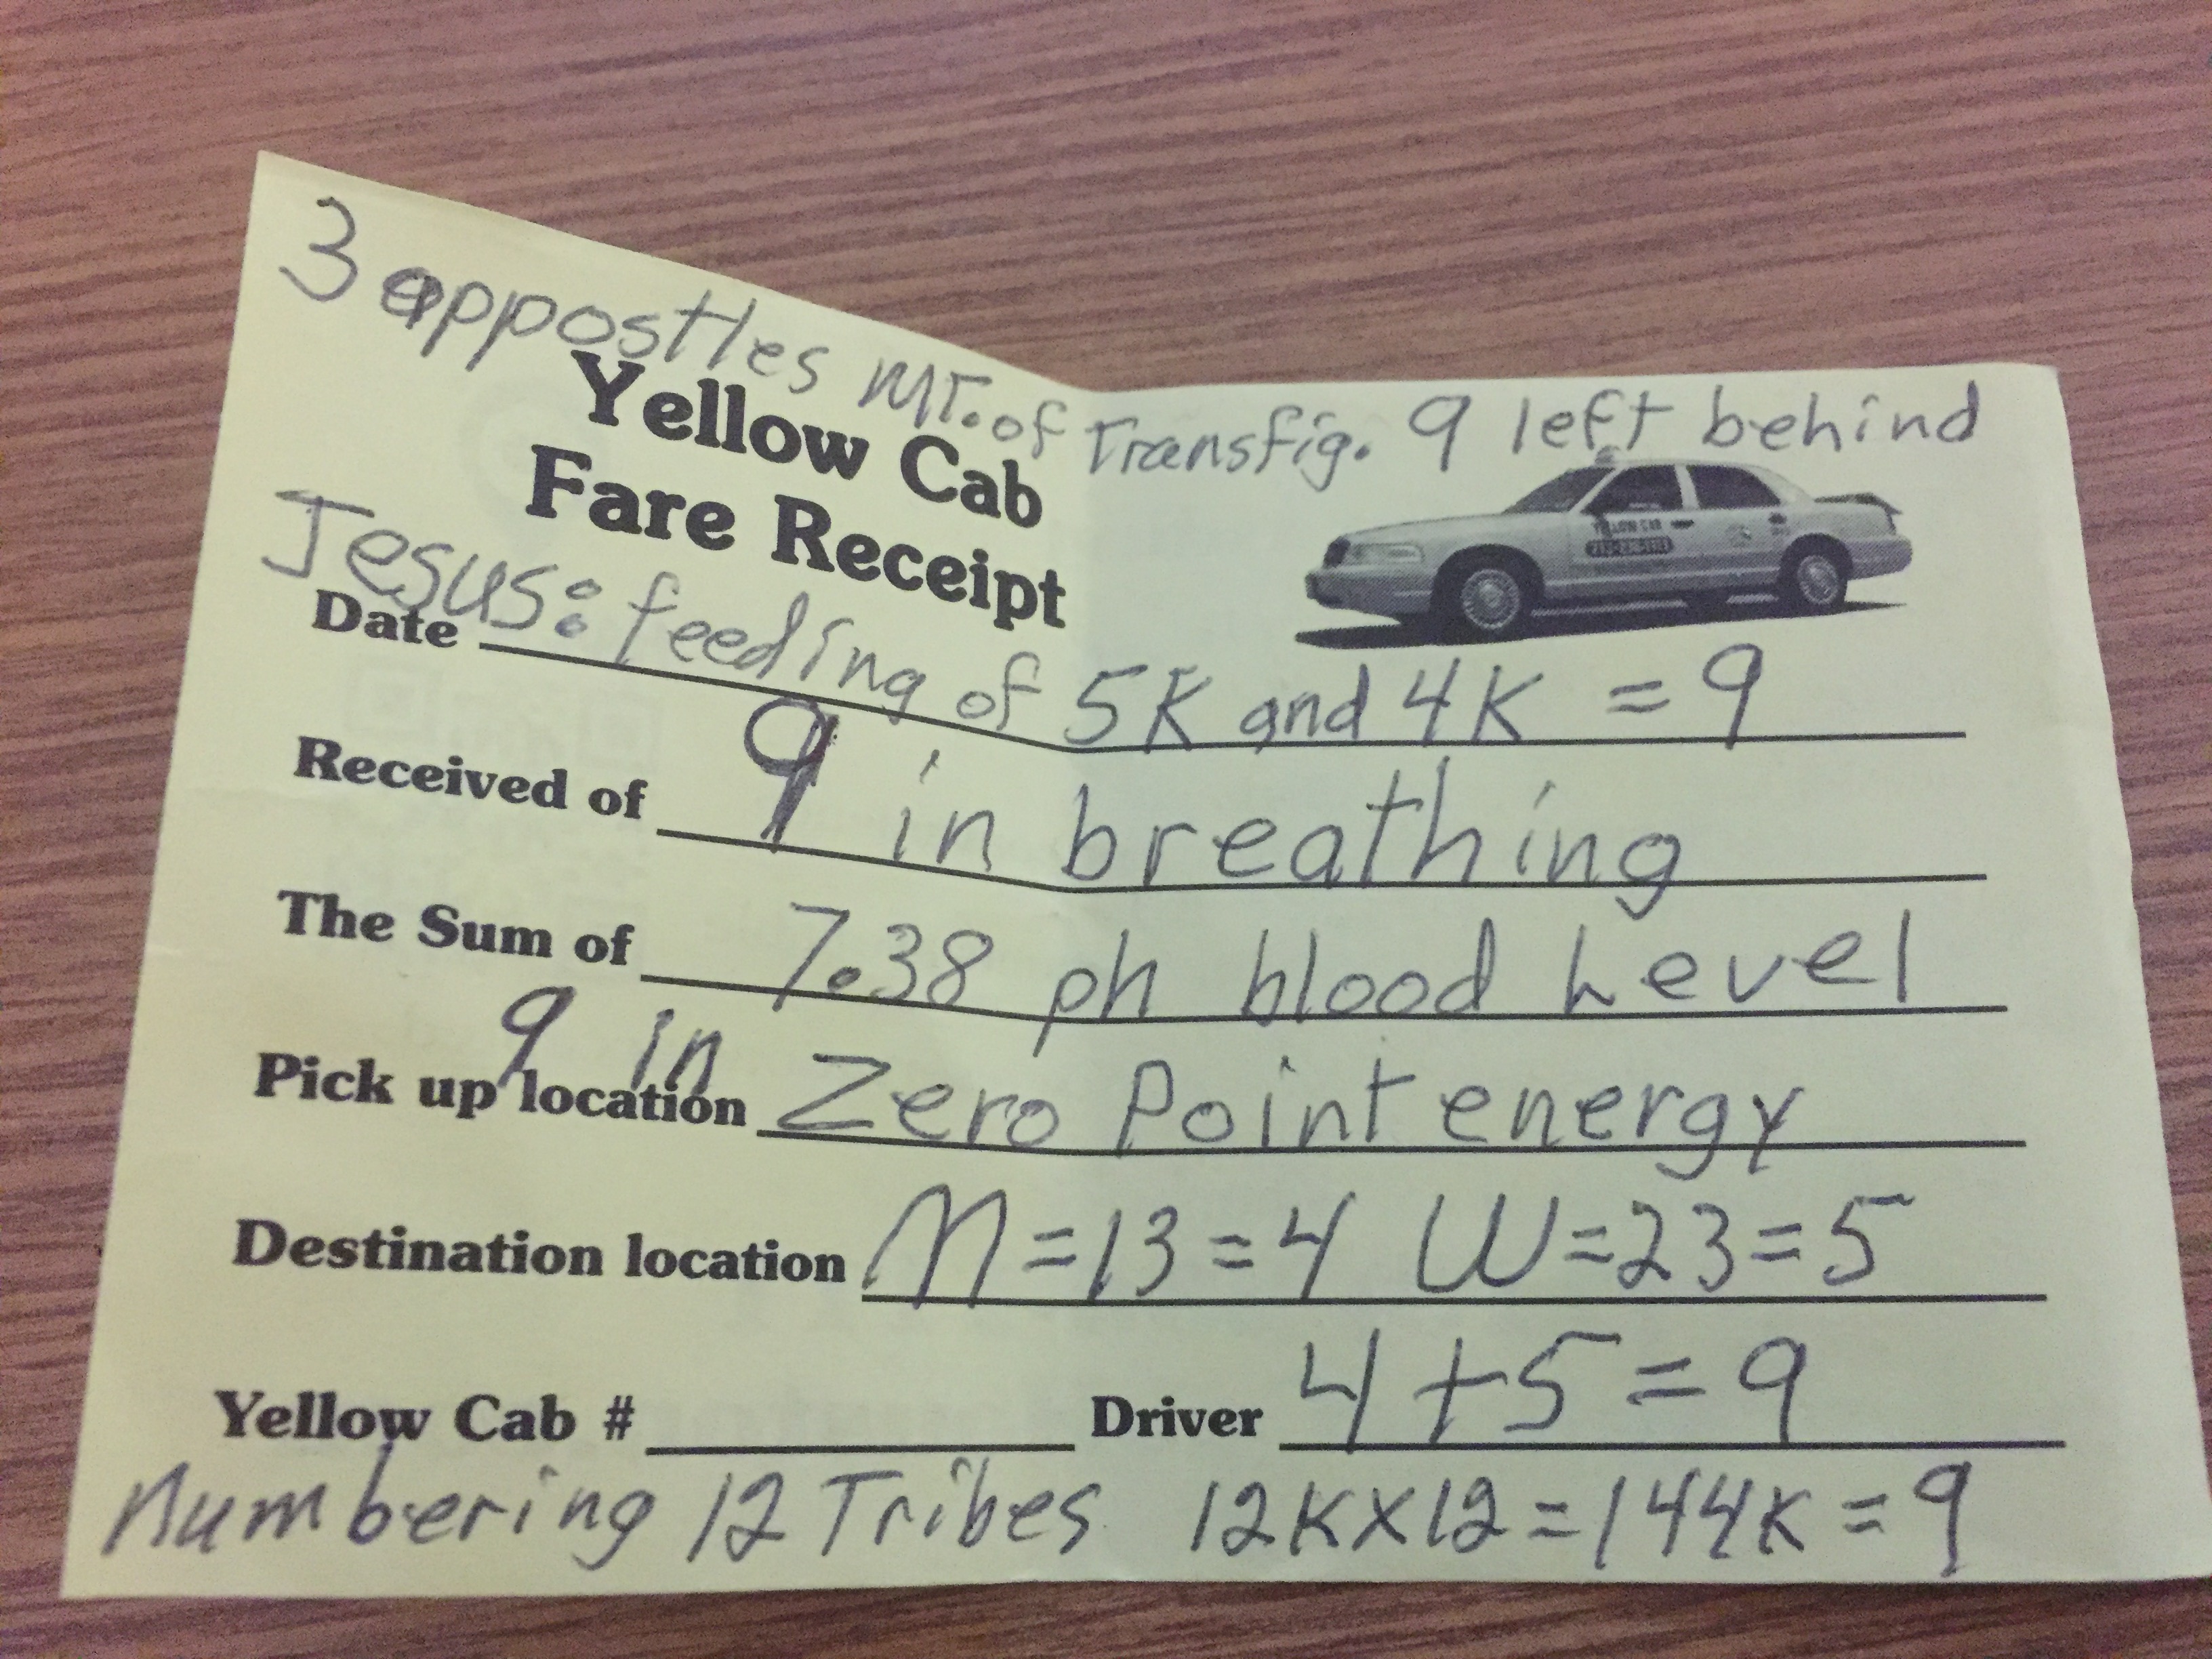 3 appostles MT. of Transfig. 9 left behind
Yellow Cab
Fare Receipt
YELLOW CAB
Jesus: feeding of 5K and 4K = 9
Date
Received of 9 in breathing
The Sum of 7.38 ph blood Level
9 in
Pick up location Zero Point energy
Destination location M=13=4 W=23=5
Yellow Cab # Driver 4+5=9
Numbering 12 Tribes 12KX12=144K=9